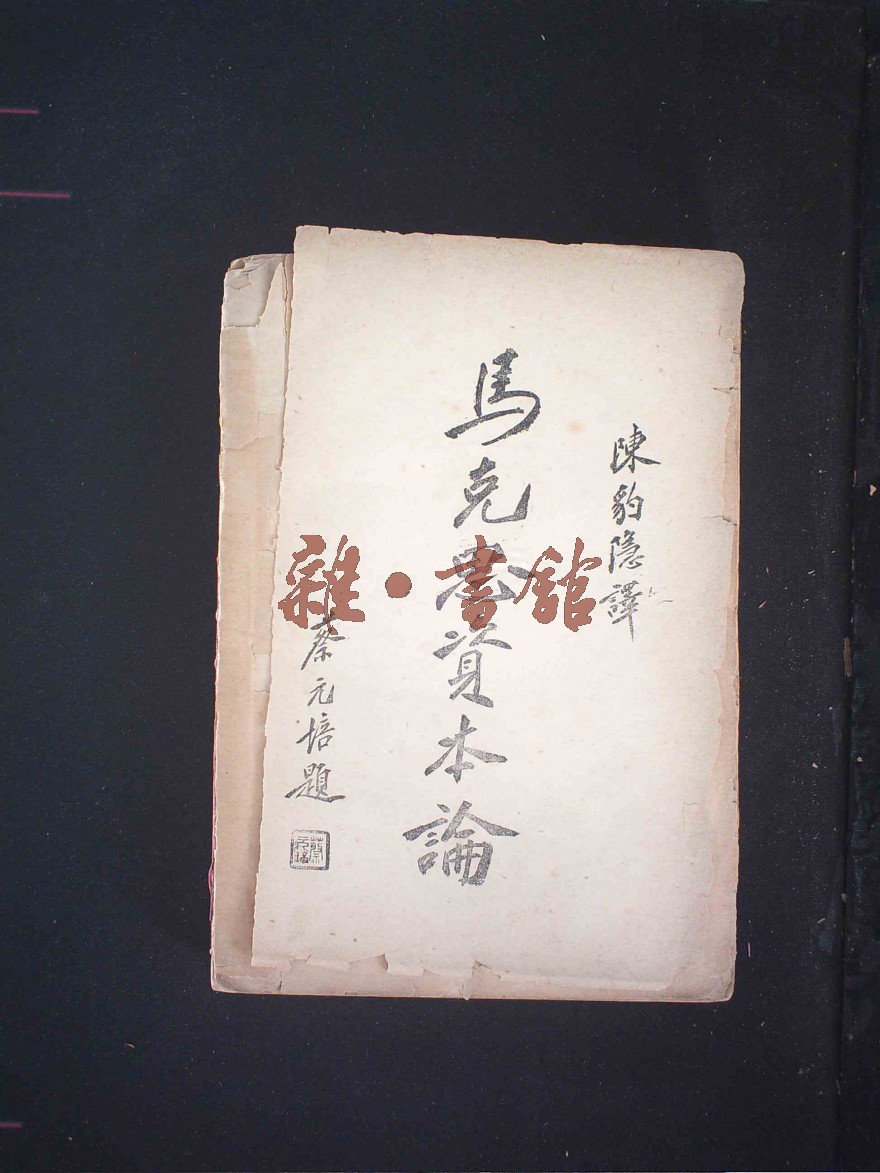 陳豹隱譯
馬克思資本論
蔡元培題
蔡元培
雜·書館